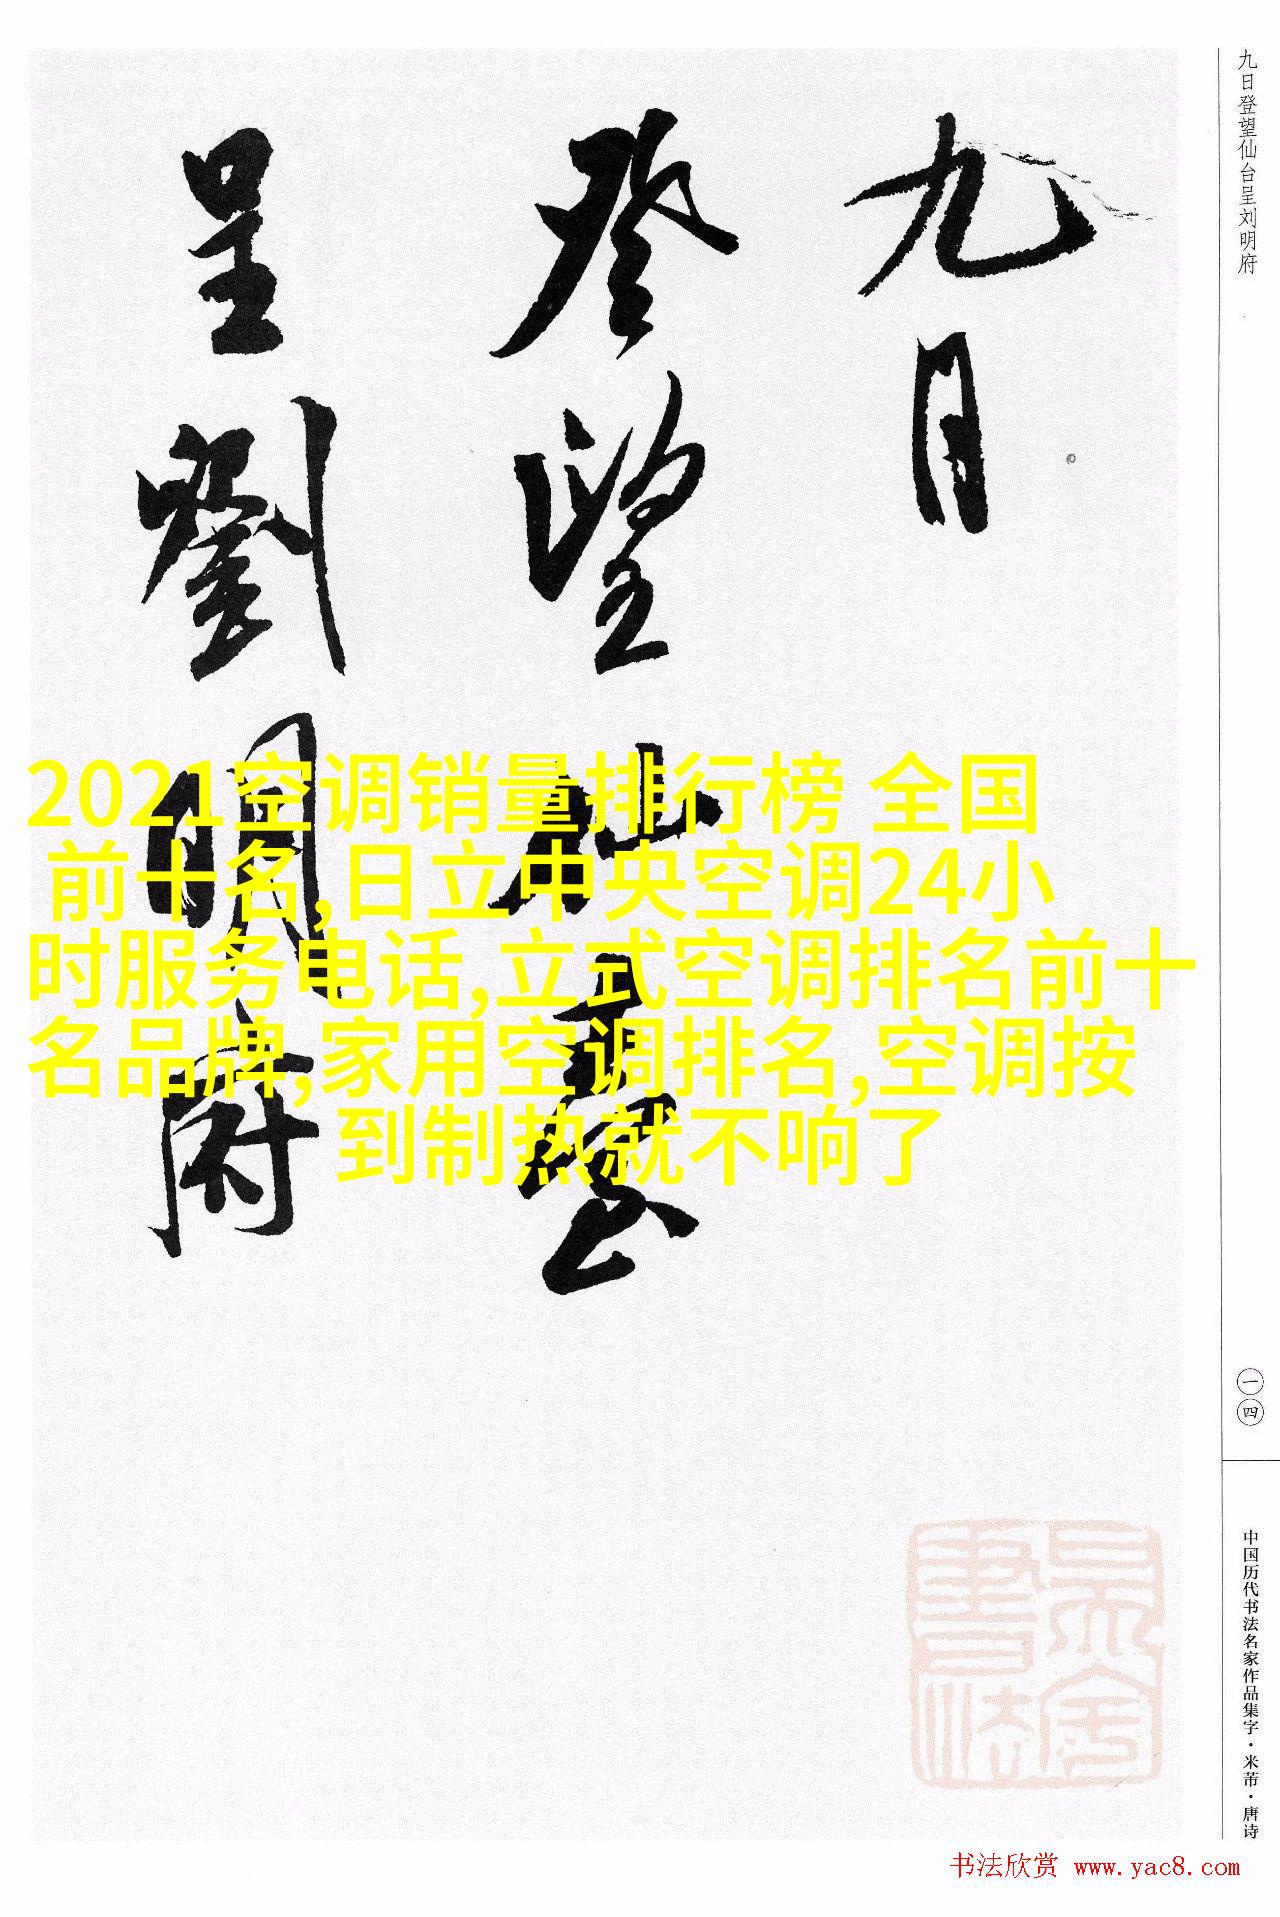 九日
登望仙臺
呈劉明府
2021空调销量排行榜 全国
前十名,日立中央空调24小
时服务电话,立式空调排名前十
名品牌,家用空调排名,空调按
到制热就不响了
九日登望仙台呈刘明府
一四
中国历代书法名家作品集字·米芾·唐诗
书法欣赏 www.yac8.com